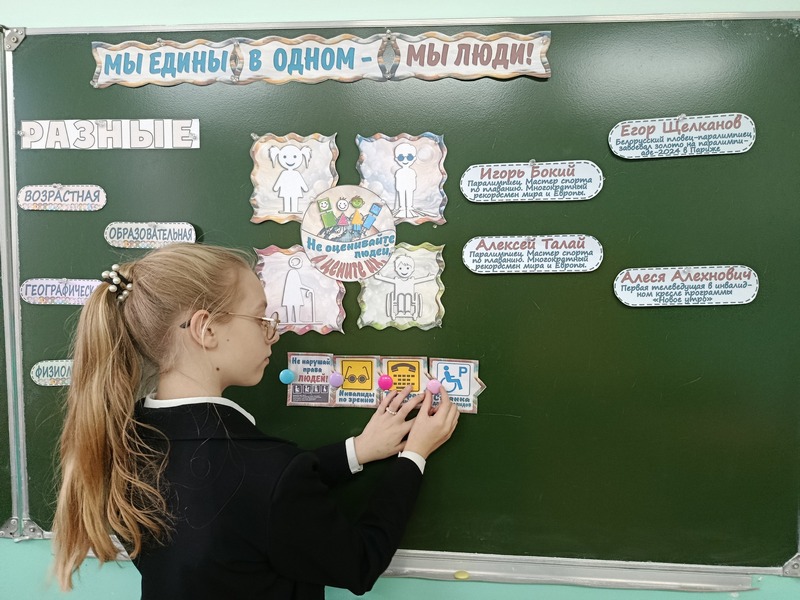 МЫ ЕДИНЫ В ОДНОМ - МЫ ЛЮДИ!
РАЗНЫЕ
ВОЗРАСТНАЯ
ОБРАЗОВАТЕЛЬНАЯ
Не оценивайте
людей,
а цените их!
Не нарушай
права
ЛЮДЕЙ!
Инвалиды
по зрению
Игорь Бокий
Паралимпиец. Мастер спорта
по плаванию. Многократный
рекордсмен мира и Европы.
Алексей Талай
Паралимпиец. Мастер спорта
по плаванию. Многократный
рекордсмен мира и Европы.
Егор Щелканов
Белорусский пловец-паралимпиец
завоевал золото на паралимпи-
аде-2024 в Париже
Алеся Алехнович
Первая телеведущая в инвалид-
ном кресле программы
«Новое утро»